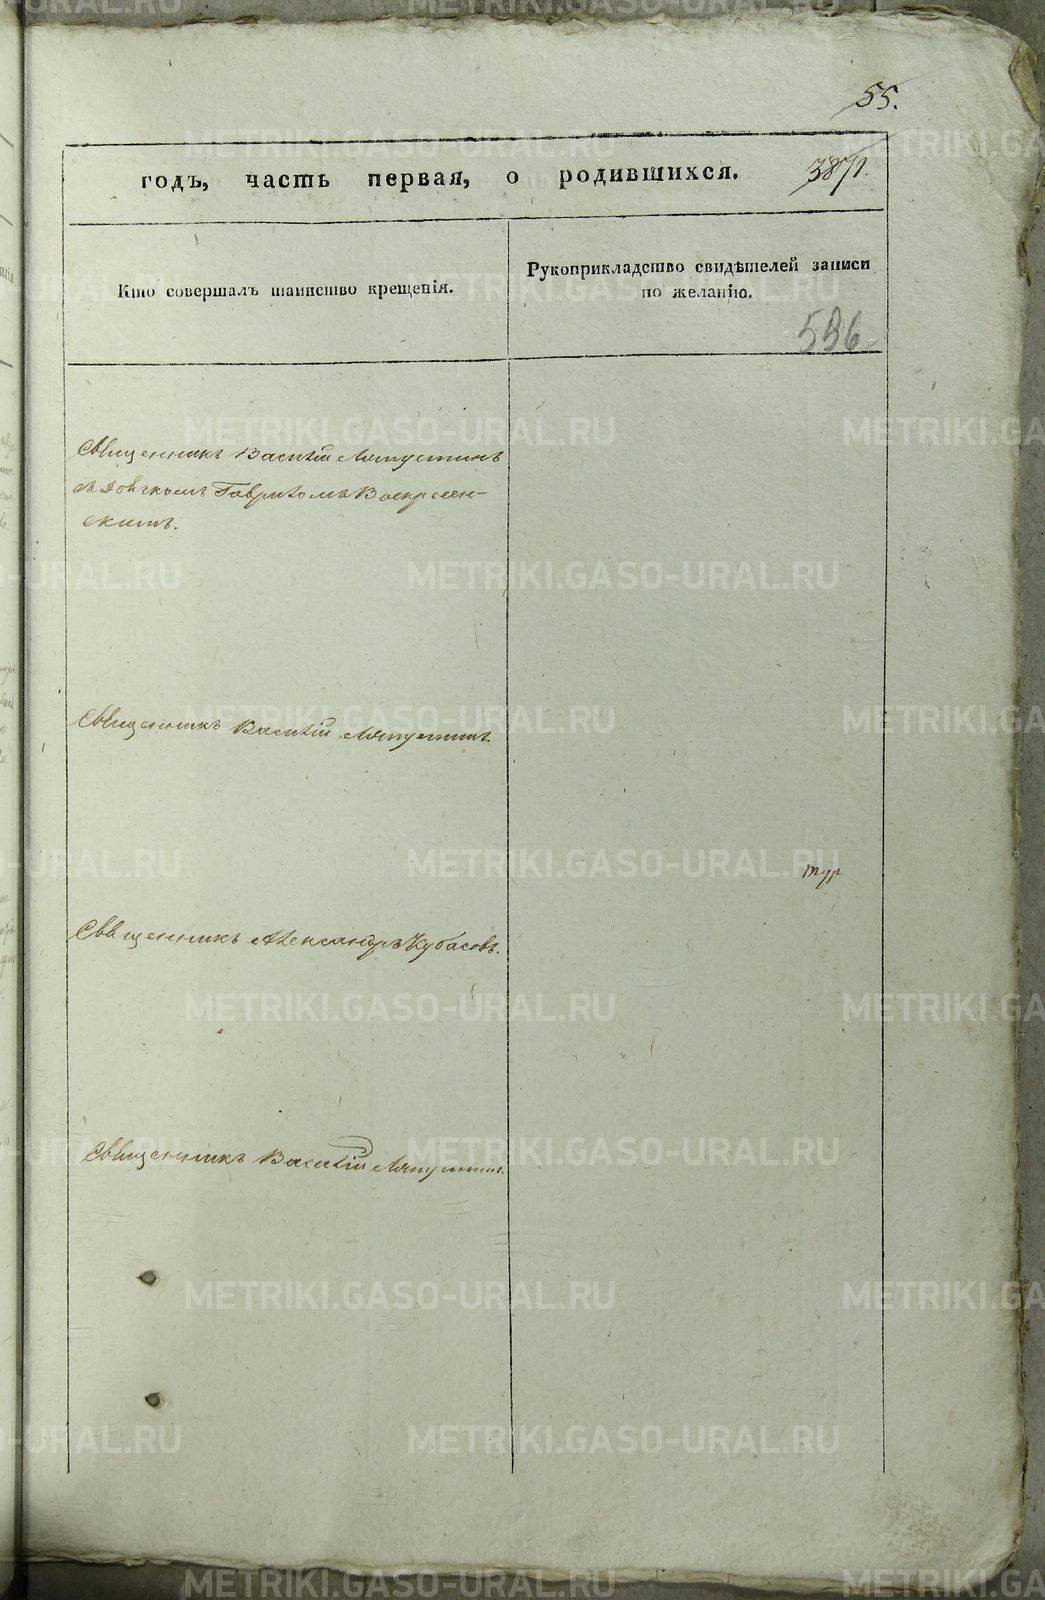 55.
годъ, часть первая, о родившихся. 387/1.
Кто совершалъ таинство крещенія.
Рукоприкладство свидѣтелей записи
по желанію.
536
Священникъ Василій Ляпустинъ
съ Дьячкомъ Гавріиломъ Воскресен-
скимъ.
Священникъ Василій Ляпустинъ.
тур
Священникъ Александръ Кубасовъ.
Священникъ Василій Ляпустинъ.
METRIKI.GASO-URAL.RU